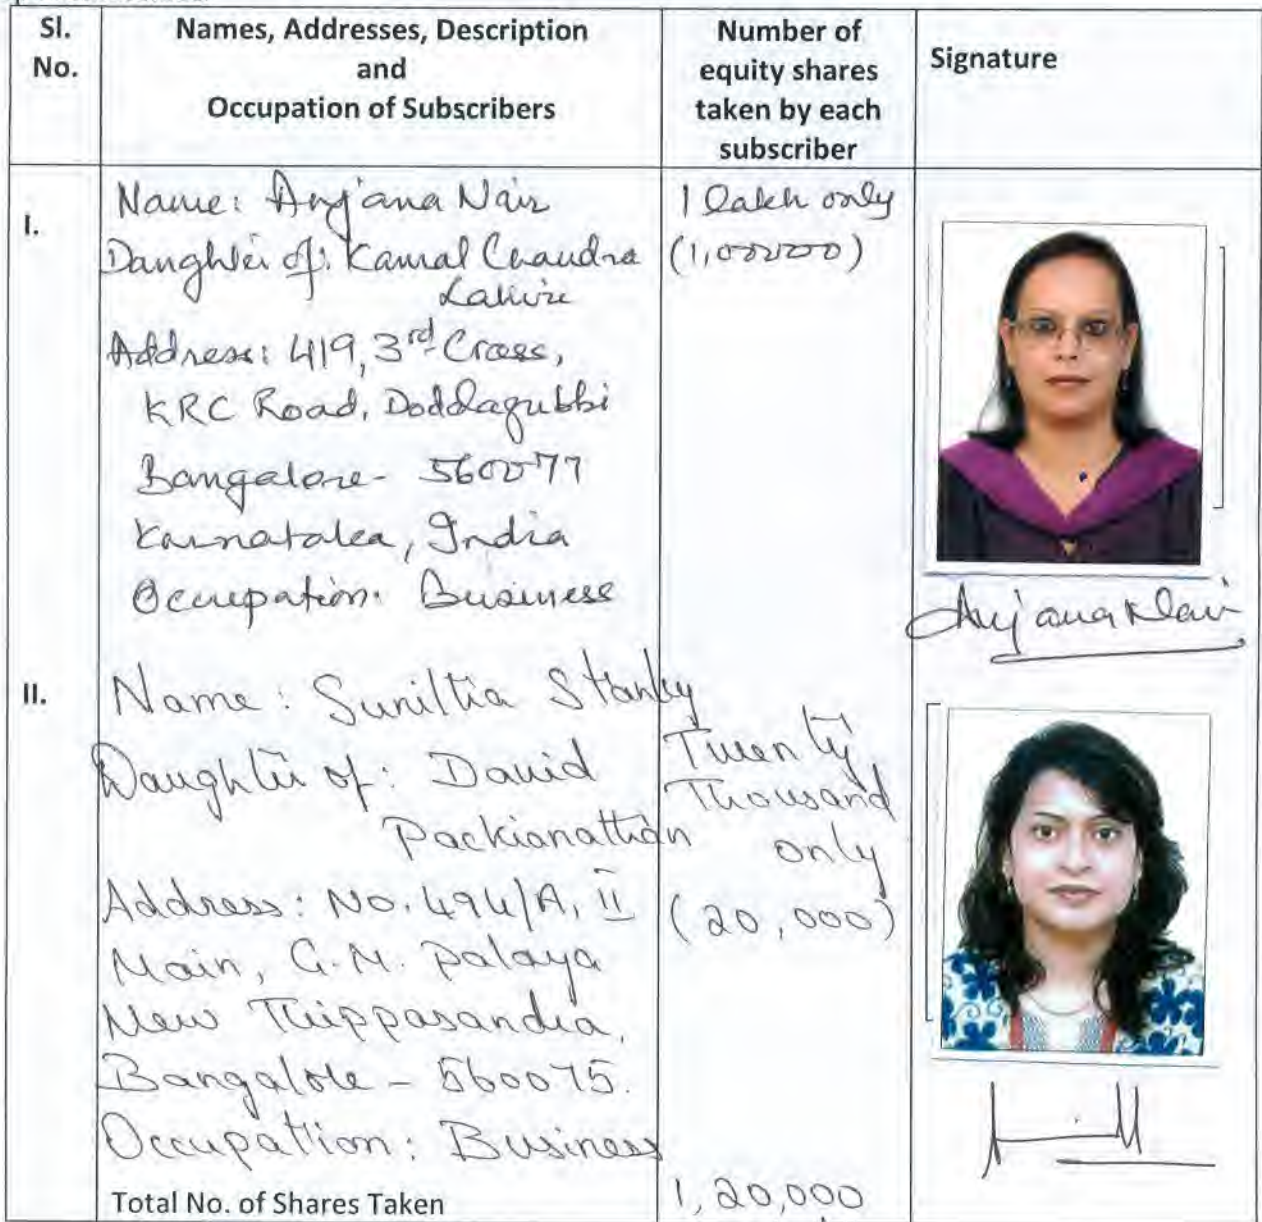 Sl. No.
Names, Addresses, Description
and
Occupation of Subscribers
Number of
equity shares
taken by each
subscriber
Signature
I.
Name: Anjana Nair
Daughter of: Kamal Chandra
Lahire
Address: 419, 3rd Cross,
KRC Road, Doddagubbi
Bangalore - 560077
Karnataka, India
Occupation: Business
1 lakh only
(1,00000)
Anjana Nair
II.
Name: Sunitha Stanley
Daughter of: David
Packianathan
Address: No. 494/A, II
Main, G.M. Palaya
New Thippasandra,
Bangalore - 560075.
Occupation: Business
Twenty
Thousand
only
(20,000)
Total No. of Shares Taken
1,20,000